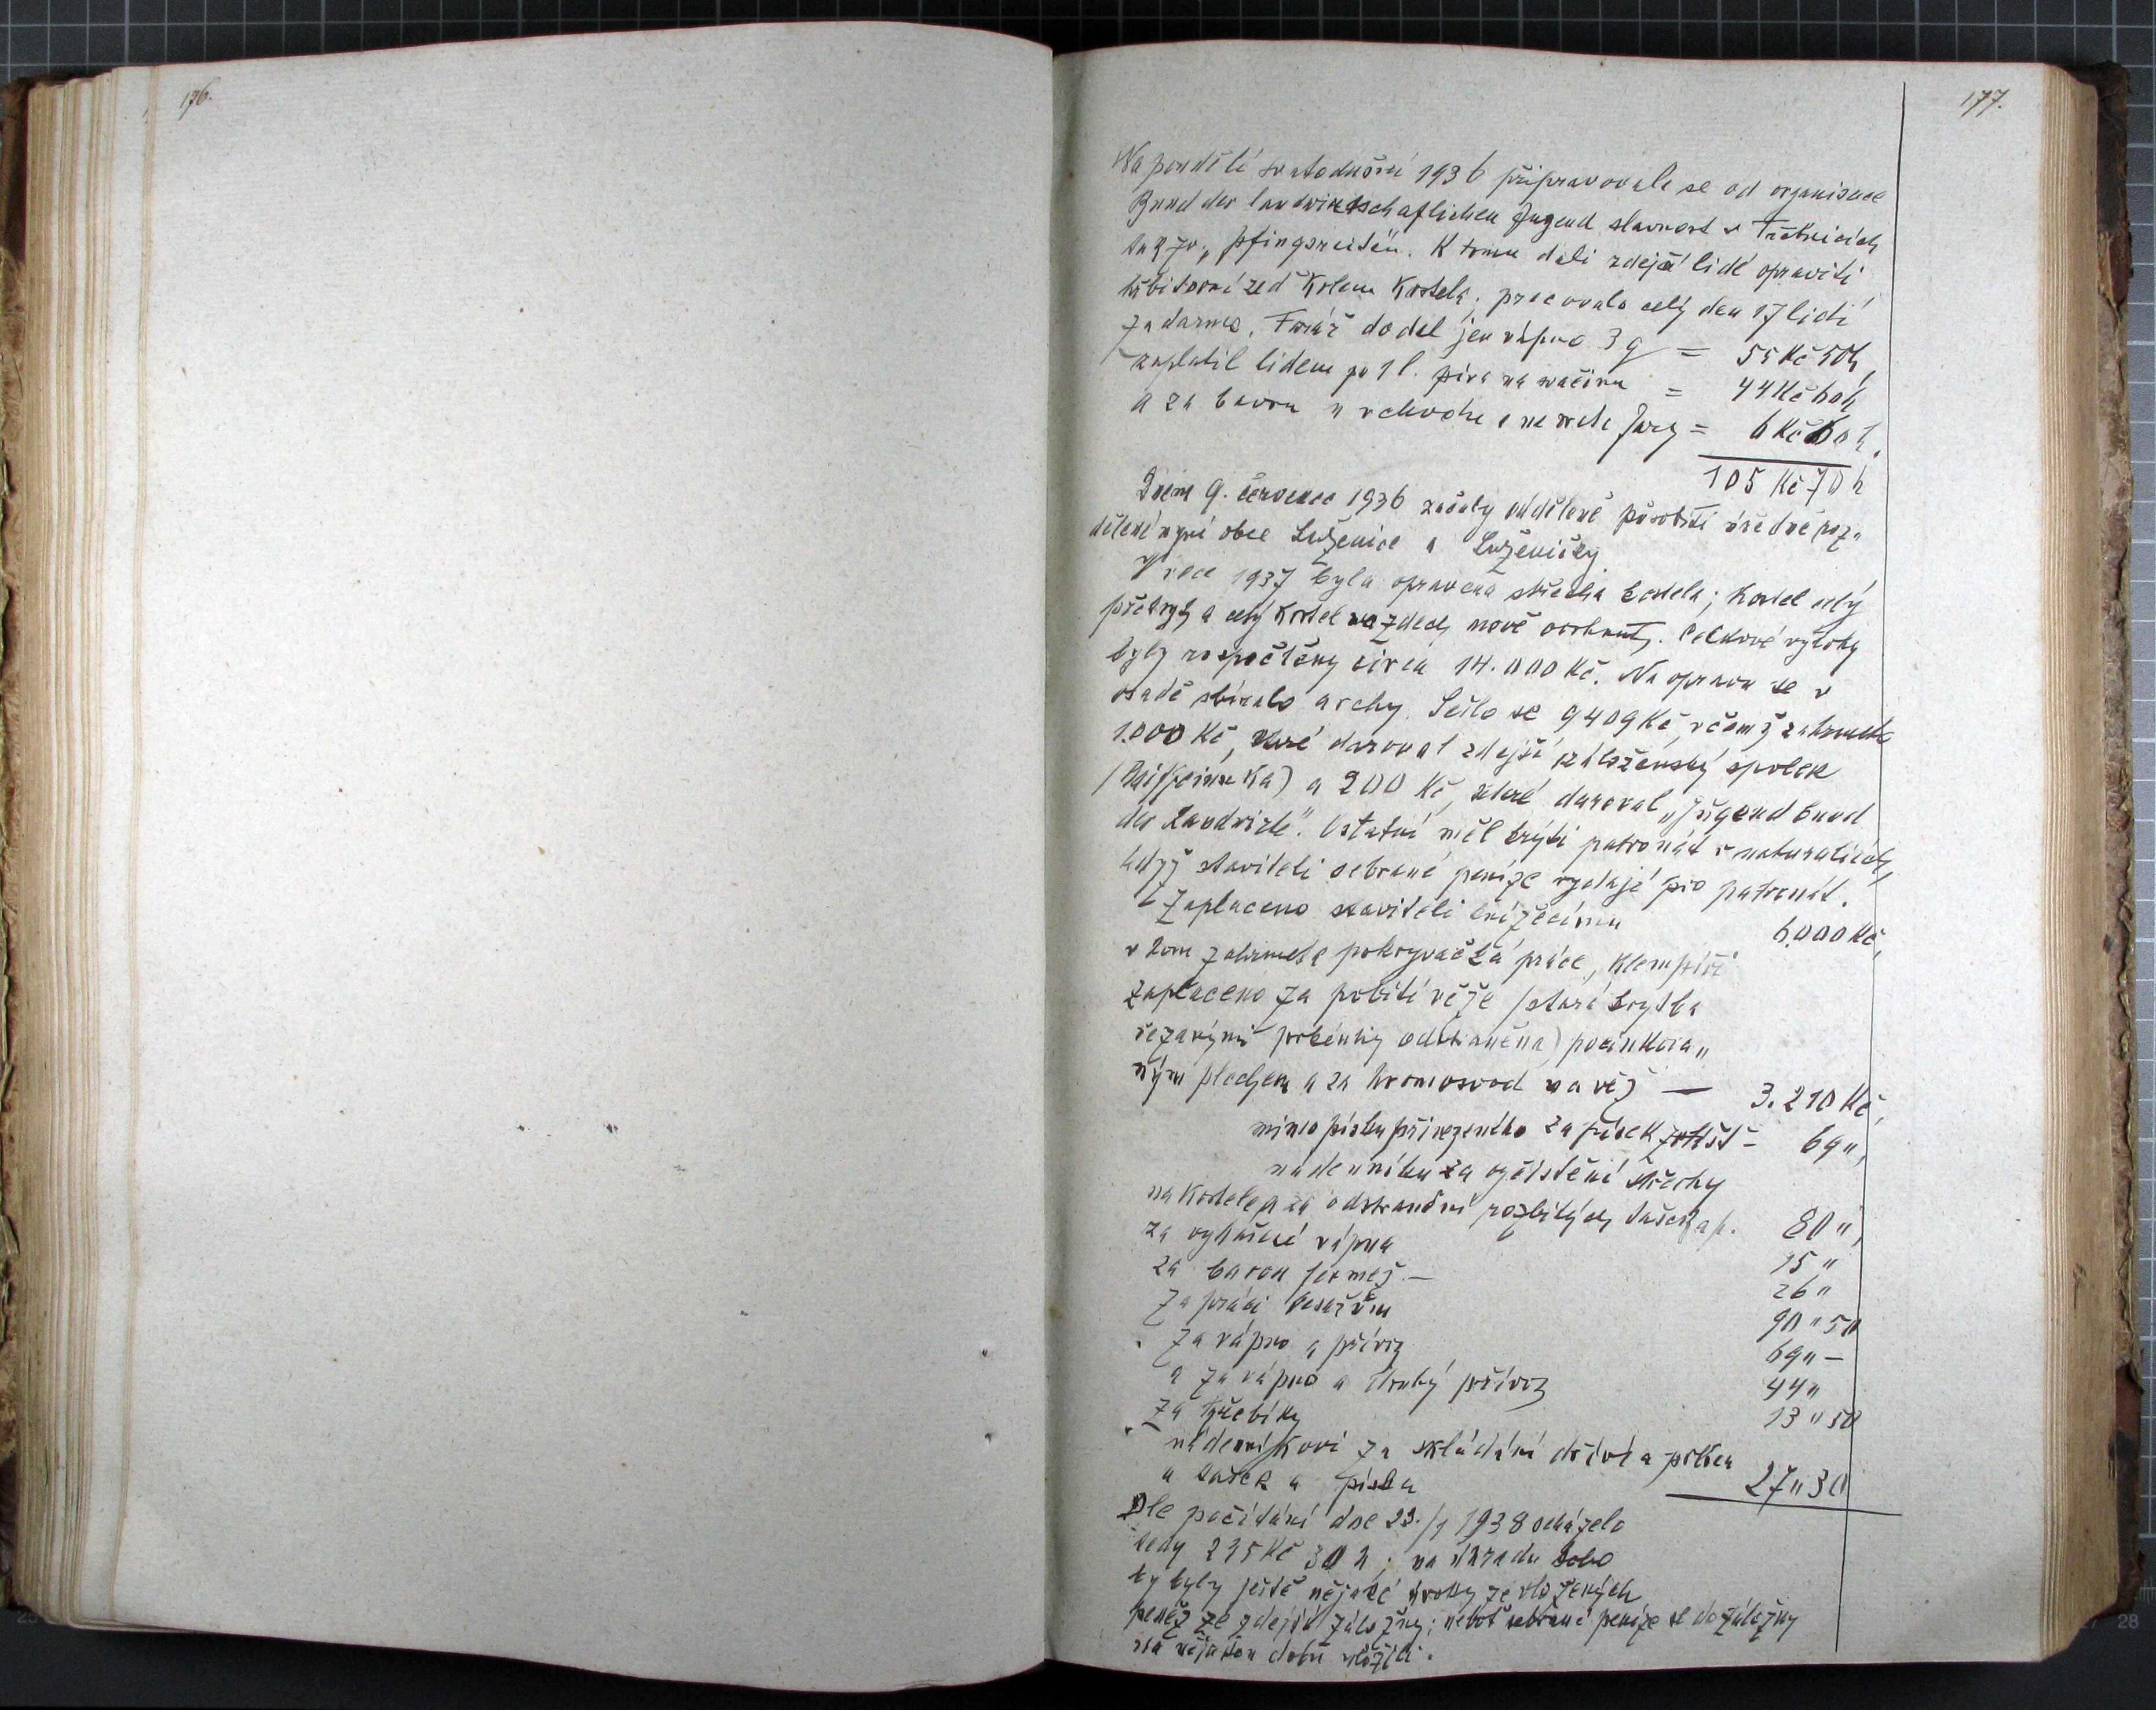 176.
177.
Na pondělí svatodušní 1936 připravovala se od organisace
Bund der landwirtschaftlichen Jugend slavnost v Třebnicích
tak zv. „Pfingsreiten“. K tomu dali zdejší lidé opraviti
hřbitovní zeď kolem kostela; pracovalo celý den 17 lidí
zadarmo. Farář dodal jen vápno 3 q = 55 Kč 50 h,
zaplatil lidem po 1 l. piva na svačinu = 44 Kč 60 h
a za barvu u vchodu a na vrata fary = 6 Kč 60 h.
105 Kč 70 h
Dnem 9. července 1936 začaly odděleně působiti úředně roz„
dělené nyní obce Luženice a Luženičky.
V roce 1937 byla opravena střecha kostela; kostel celý
překryt a celý kostel na zdech nově ovrhnut. Celkové výlohy
byly rozpočteny circa 14.000 Kč. Na opravu se v
osadě sbíralo archy. Sešlo se 9409 Kč, v čemž zahrnuto
1.000 Kč, které daroval zdejší záloženský spolek
(Raiffeisenka) a 200 Kč, které daroval „Jugendbund
der Landwirte“. Ostatní měl krýti patronát v naturaliích,
když staviteli sebrané peníze vydají pro patronát.
Zaplaceno staviteli knížecímu 6.000 Kč,
v tom zahrnuta pokryvačská práce, klempíři
zaplaceno za pobití věže (stará krytba
řezanými prkénky odstraněna) pocinkova„
ným plechem a za hromosvod na věž — 3.210 Kč,
mimo písku přivezeného za písek - 69 „,
nádenníku za vyčistění střechy
na kostele a za odstranění rozbitých tašek 80 „,
za vyhašení vápna 15 „
za barvu fermež. — 26 „
za práci tesařům 90 „ 50
za vápno a přívoz 69 „ —
a za vápno a druhý přívoz 44 „
za hřebíky 13 „ 50
nádenníkovi za skládání dříví a prken
a tašek a písku 27 „ 30
Dle počítání dne 23./1 1938 scházelo
tedy 235 Kč 30 h; na úhradu toho
by byly ještě nějaké úroky ze vložených
peněz ze zdejší záložny; neboť sebrané peníze se do záložny
na nějakou dobu vložili.